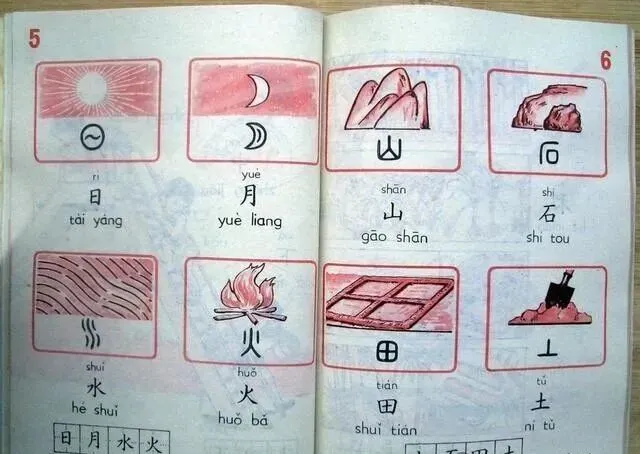 5
rì yuè
日 月
tài yáng yuè liang
shuǐ huǒ
水 火
hé shuǐ huǒ bǎ
日 月 水 火
6
shān shí
山 石
gāo shān shí tou
tián tǔ
田 土
shuǐ tián ní tǔ